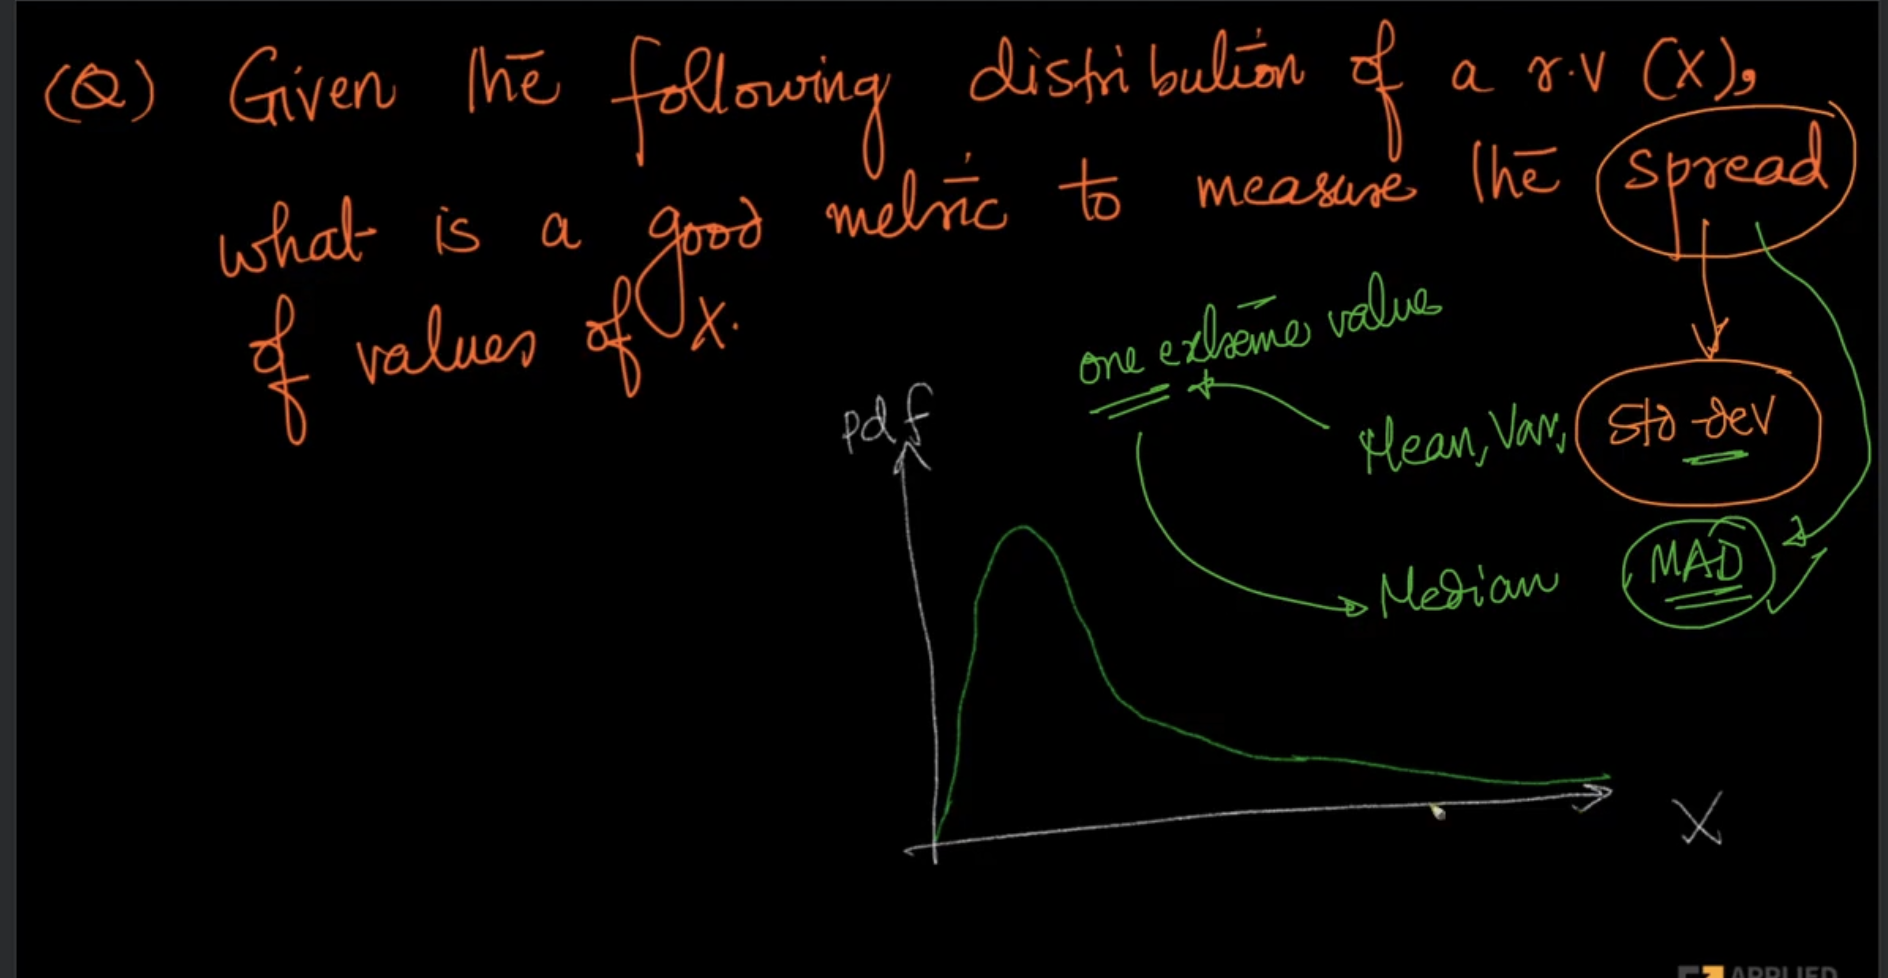 (Q) Given the following distribution of a r.v (X),
what is a good metric to measure the spread
of values of X.
one extreme value
Mean, Var, std-dev
Median MAD
pdf
X
APPLIED